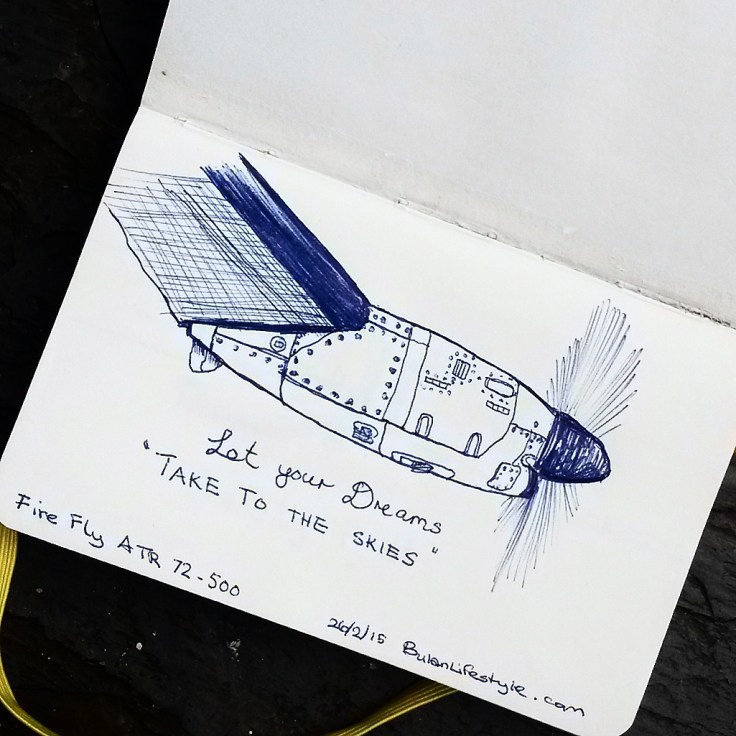 Let your Dreams
"TAKE TO THE SKIES"
Fire Fly ATR 72-500
26/2/15 BulanLifestyle.com